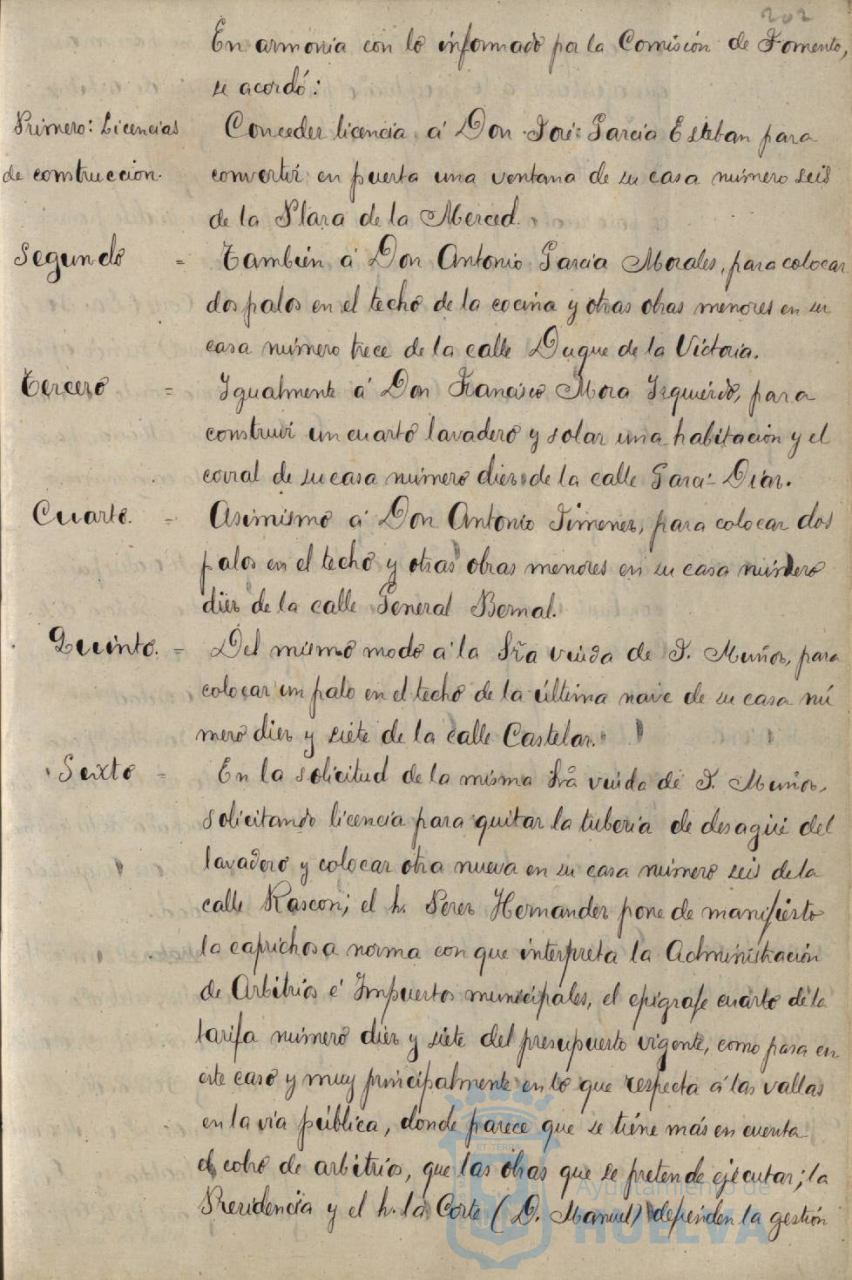 202
En armonía con lo informado por la Comisión de Fomento,
se acordó:
Primero: Licencias
de construccion.
Conceder licencia á Don José García Esteban para
convertir en puerta una ventana de su casa número seis
de la Plaza de la Merced.
Segundo =
También á Don Antonio García Morales, para colocar
dos palos en el techo de la cocina y otras obras menores en su
casa número trece de la calle Duque de la Victoria.
Tercero =
Igualmente á Don Francisco Mora Izquierdo, para
construir un cuarto lavadero y solar una habitación y el
corral de su casa número diez de la calle Garci-Díaz.
Cuarto. =
Asimismo á Don Antonio Jimenez, para colocar dos
palos en el techo y otras obras menores en su casa número
diez de la calle General Bernal.
Quinto. =
Del mismo modo á la Sra viuda de J. Muñoz, para
colocar un palo en el techo de la última nave de su casa nú
mero diez y siete de la calle Castelar.
Sexto =
En la solicitud de la misma Sra viuda de J. Muñoz,
solicitando licencia para quitar la tubería de desagüe del
lavadero y colocar otra nueva en su casa número seis de la
calle Rascon; el h. Perez Hernandez pone de manifiesto
la caprichosa norma con que interpreta la Administración
de Arbitrios é Impuestos municipales, el epígrafe cuarto de la
tarifa número diez y siete del presupuesto vigente, como pasa en
este caso y muy principalmente en lo que respecta á las vallas
en la vía pública, donde parece que se tiene más en cuenta
el cobro de arbitrios, que las obras que se pretende ejecutar; la
Presidencia y el h. la Corte (D. Manuel) defienden la gestión
Ayuntamiento de
HUELVA